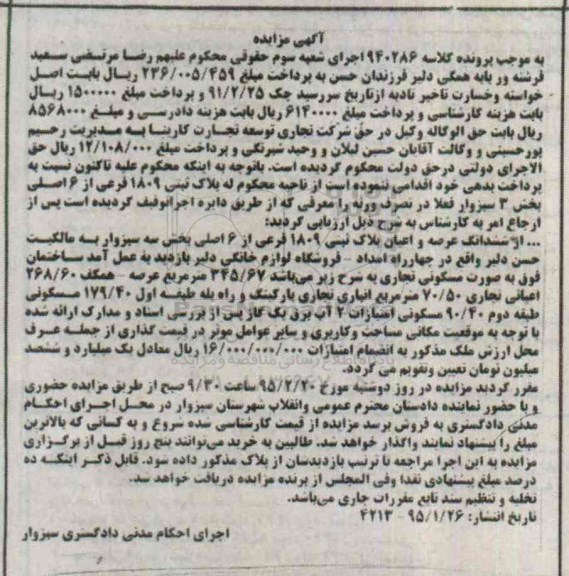 آگهی مزایده
به موجب پرونده کلاسه ۹۴۰۲۸۶ اجرای شعبه سوم حقوقی محکوم علیهم رضا مرتضی سعید
فرشته و ربابه همگی دلبر فرزندان حسن به پرداخت مبلغ ۲۳۶/۰۰۵/۴۵۹ ریال بابت اصل
خواسته وخسارت تاخیر تادیه ازتاریخ سررسید چک ۹۱/۲/۲۵ و پرداخت مبلغ ۱۵۰۰۰۰۰ ریال
بابت هزینه کارشناسی و پرداخت مبلغ ۶۱۴۰۰۰۰ ریال بابت هزینه دادرسی و مبلغ ۸۵۶۸۰۰۰
ریال بابت حق الوکاله وکیل در حق شرکت تجاری توسعه تجارت کارینا به مدیریت رحیم
پورحسینی و وکالت آقایان حسین لبلان و وحید شیرنگی و پرداخت مبلغ ۱۲/۱۰۸/۰۰۰ ریال حق
الاجرای دولتی درحق دولت محکوم گردیده است. باتوجه به اینکه محکوم علیه تاکنون نسبت به
پرداخت بدهی خود اقدامی ننموده است از ناحیه محکوم له پلاک ثبتی ۱۸۰۹ فرعی از ۶ اصلی
بخش ۳ سبزوار فعلا در تصرف ورثه را معرفی که از طریق دایره اجراتوقیف گردیده است پس از
ارجاع امر به کارشناس به شرح ذیل ارزیابی گردید:
... از ششدانگ عرصه و اعیان پلاک ثبتی ۱۸۰۹ فرعی از ۶ اصلی بخش سه سبزوار به مالکیت
حسن دلبر واقع در چهارراه امداد - فروشگاه لوازم خانگی دلبر بازدید به عمل آمد ساختمان
فوق به صورت مسکونی تجاری به شرح زیر می‌باشد ۳۴۵/۶۷ مترمربع عرصه - همکف ۲۶۸/۶۰
اعیانی تجاری ۷۰/۵۰ مترمربع انباری تجاری پارکینگ و راه پله طبقه اول ۱۷۹/۴۰ مسکونی
طبقه دوم ۹۰/۴۰ مسکونی امتیازات ۲ آب برق یک گاز پس از بررسی اسناد و مدارک ارائه شده
با توجه به موقعیت مکانی مساحت وکاربری و سایر عوامل موثر در قیمت گذاری از جمله عرف
محل ارزش ملک مذکور به انضمام امتیازات ۱۶/۰۰۰/۰۰۰/۰۰۰ ریال معادل یک میلیارد و ششصد
میلیون تومان تعیین وتقویم می گردد.
مقرر گردید مزایده در روز دوشنبه مورخ ۹۵/۲/۲۰ ساعت ۹/۳۰ صبح از طریق مزایده حضوری
و با حضور نماینده دادستان محترم عمومی وانقلاب شهرستان سبزوار در محل اجرای احکام
مدنی دادگستری به فروش برسد مزایده از قیمت کارشناسی شده شروع و به کسانی که بالاترین
مبلغ را پیشنهاد نمایند واگذار خواهد شد. طالبین به خرید می‌توانند پنج روز قبل از برگزاری
مزایده به این اجرا مراجعه تا ترتیب بازدیدشان از پلاک مذکور داده شود. قابل ذکر اینکه ده
درصد مبلغ پیشنهادی نقدا وفی المجلس از برنده مزایده دریافت خواهد شد.
تخلیه و تنظیم سند تابع مقررات جاری می‌باشد.
تاریخ انتشار: ۹۵/۱/۲۶ - ۴۲۱۳
اجرای احکام مدنی دادگستری سبزوار